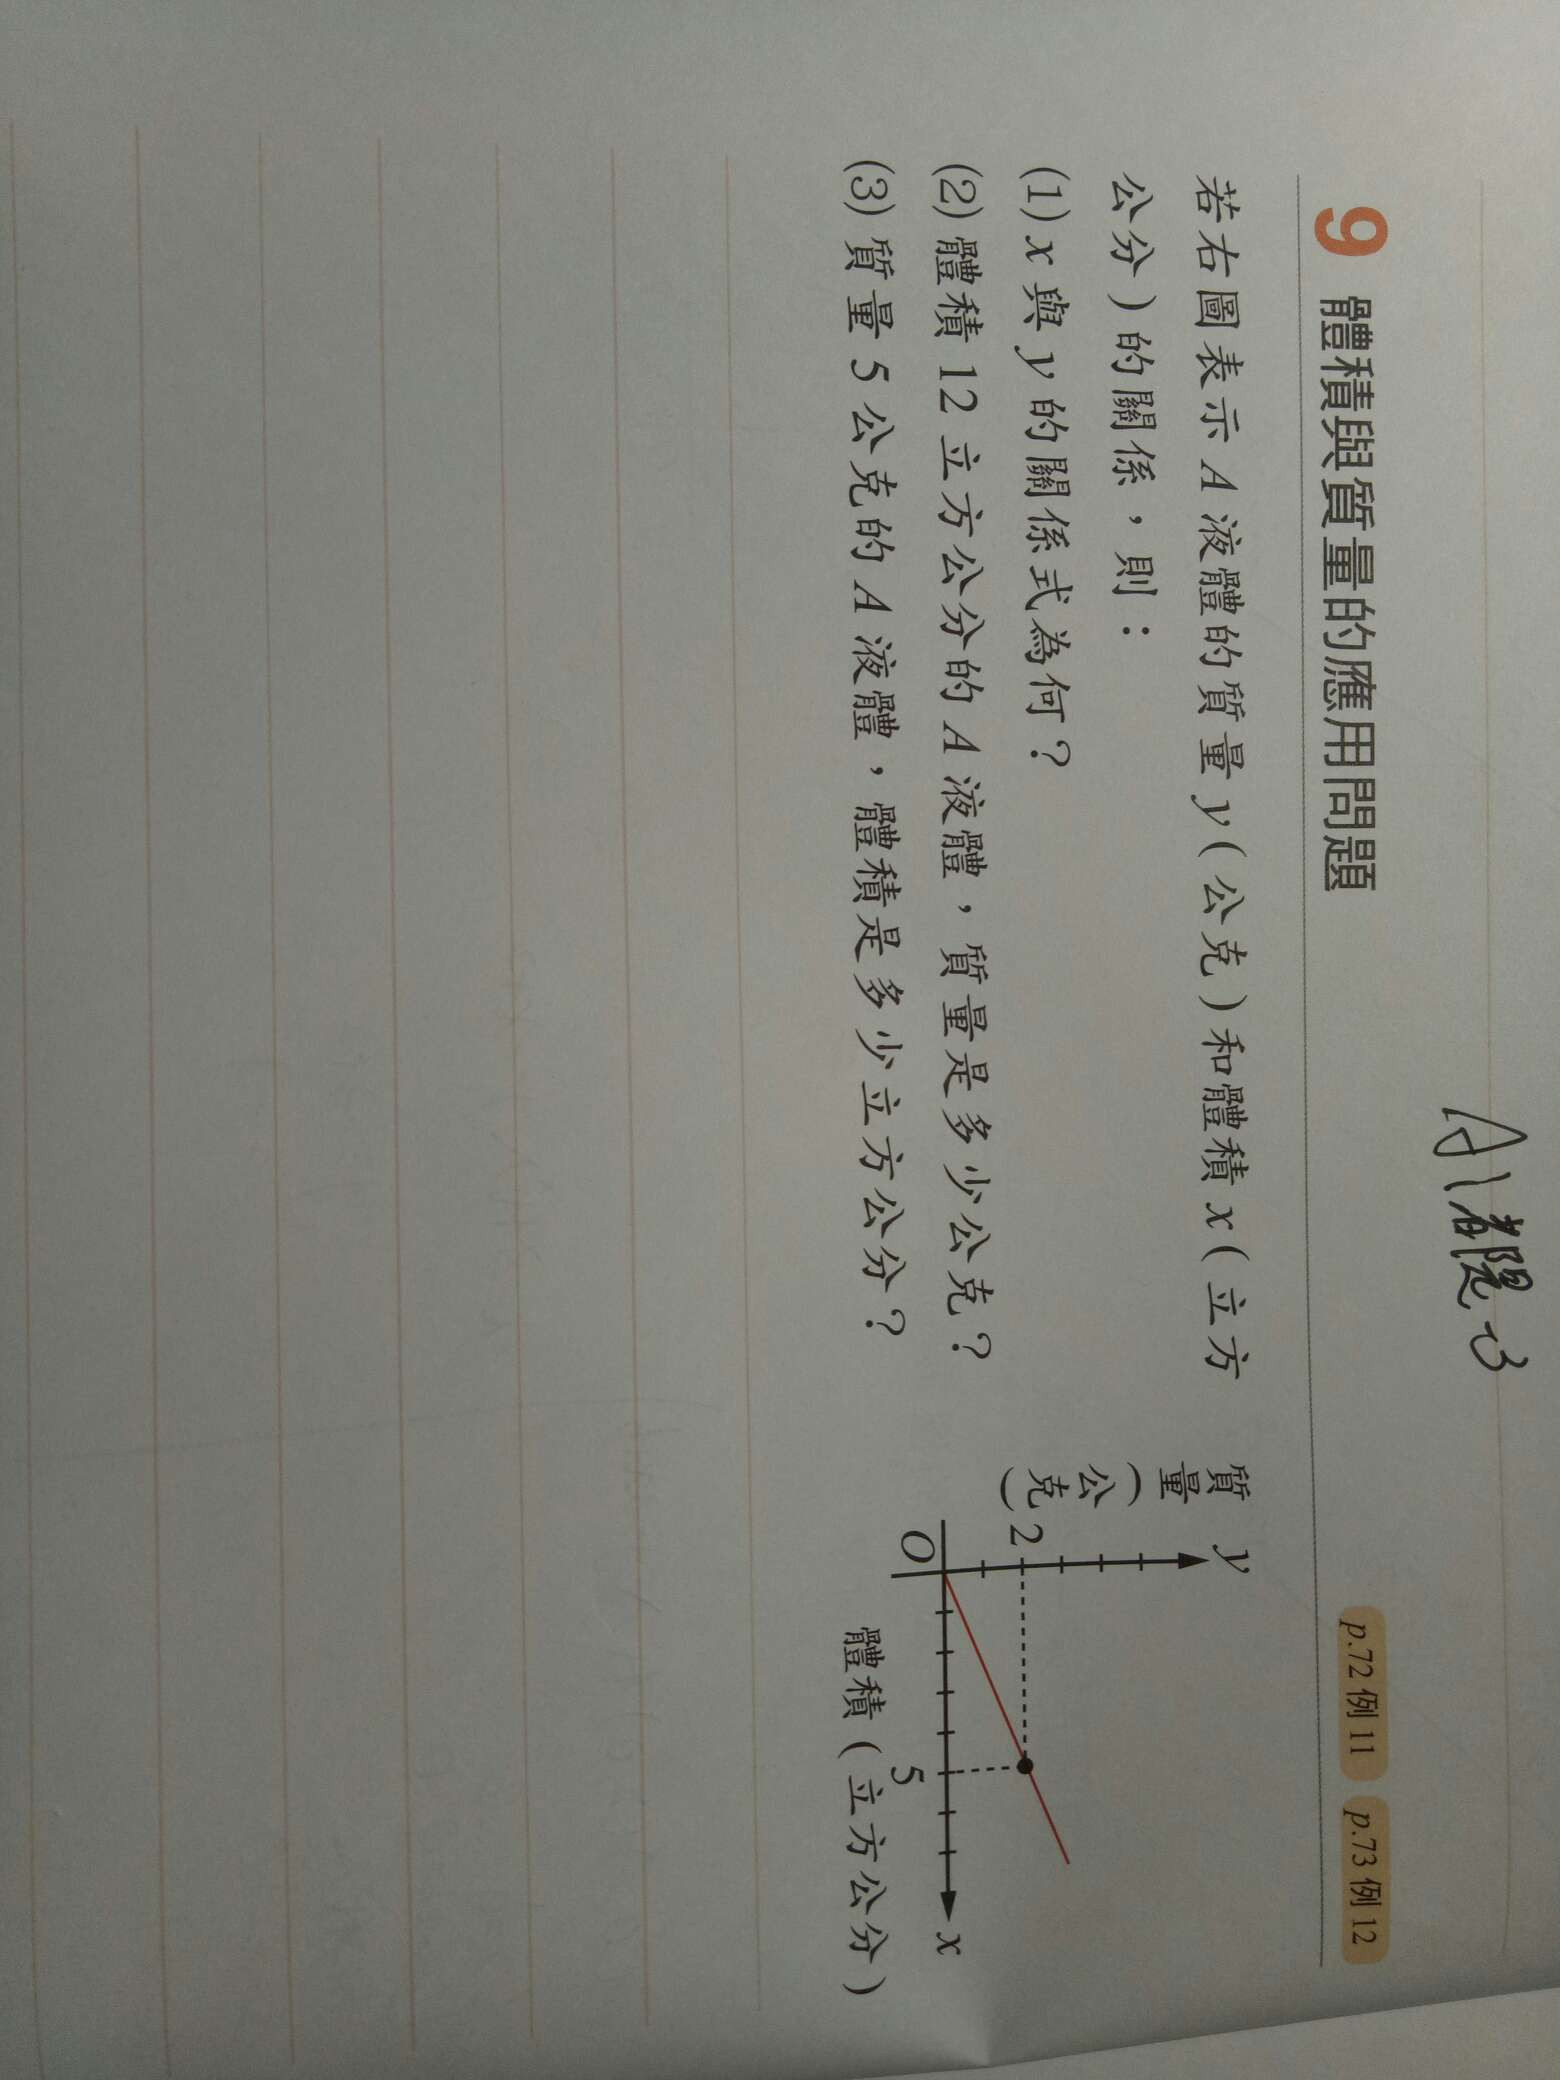 9 體積與質量的應用問題 p.72 例 11 p.73 例 12
若右圖表示 A 液體的質量 y(公克)和體積 x(立方
公分)的關係，則：
(1) x 與 y 的關係式為何？
(2) 體積 12 立方公分的 A 液體，質量是多少公克？
(3) 質量 5 公克的 A 液體，體積是多少立方公分？
質量(公克)
y
2
O
5
x
體積(立方公分)